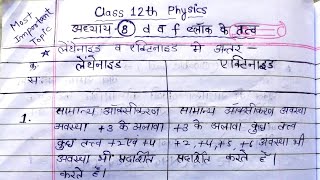 Most Important Topic
Class 12th Physics
अध्याय -8 d व f ब्लॉक के तत्व
* लैंथेनाइड व एक्टिनाइड में अन्तर -
क्र. स. लैंथेनाइड एक्टिनाइड
1. सामान्य ऑक्सीकरण सामान्य ऑक्सीकरण अवस्था
अवस्था +3 के अलावा +3 के अलावा कुछ तत्व
कुछ तत्व +2 एवं +4 +2, +4, +5, +6 अवस्था भी
अवस्था भी प्रदर्शित प्रदर्शित करते है।
करते है।